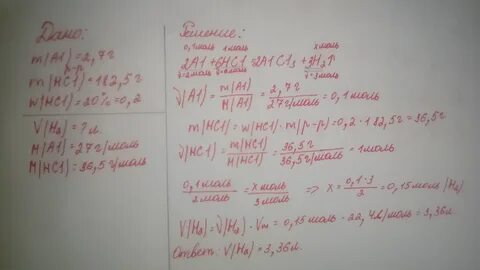 Дано:
m(Al)=2,7г
p-p
m(HCl)=182,5г
w(HCl)=20%=0,2
V(H₂)=?л.
M(Al)=27г/моль
M(HCl)=36,5г/моль
Решение:
0,1моль 1моль xмоль
2Al+6HCl=2AlCl₃+3H₂↑
ν=2моль ν=6моль ν=3моль
ν(Al)=m(Al)/M(Al)=2,7г/27г/моль=0,1моль
m(HCl)=w(HCl)·m(p-p)=0,2·182,5г=36,5г
ν(HCl)=m(HCl)/M(HCl)=36,5г/36,5г/моль=1моль
0,1моль/2моль=xмоль/3моль => x=0,1·3/2=0,15моль(H₂)
V(H₂)=ν(H₂)·Vm=0,15моль·22,4л/моль=3,36л.
Ответ: V(H₂)=3,36л.